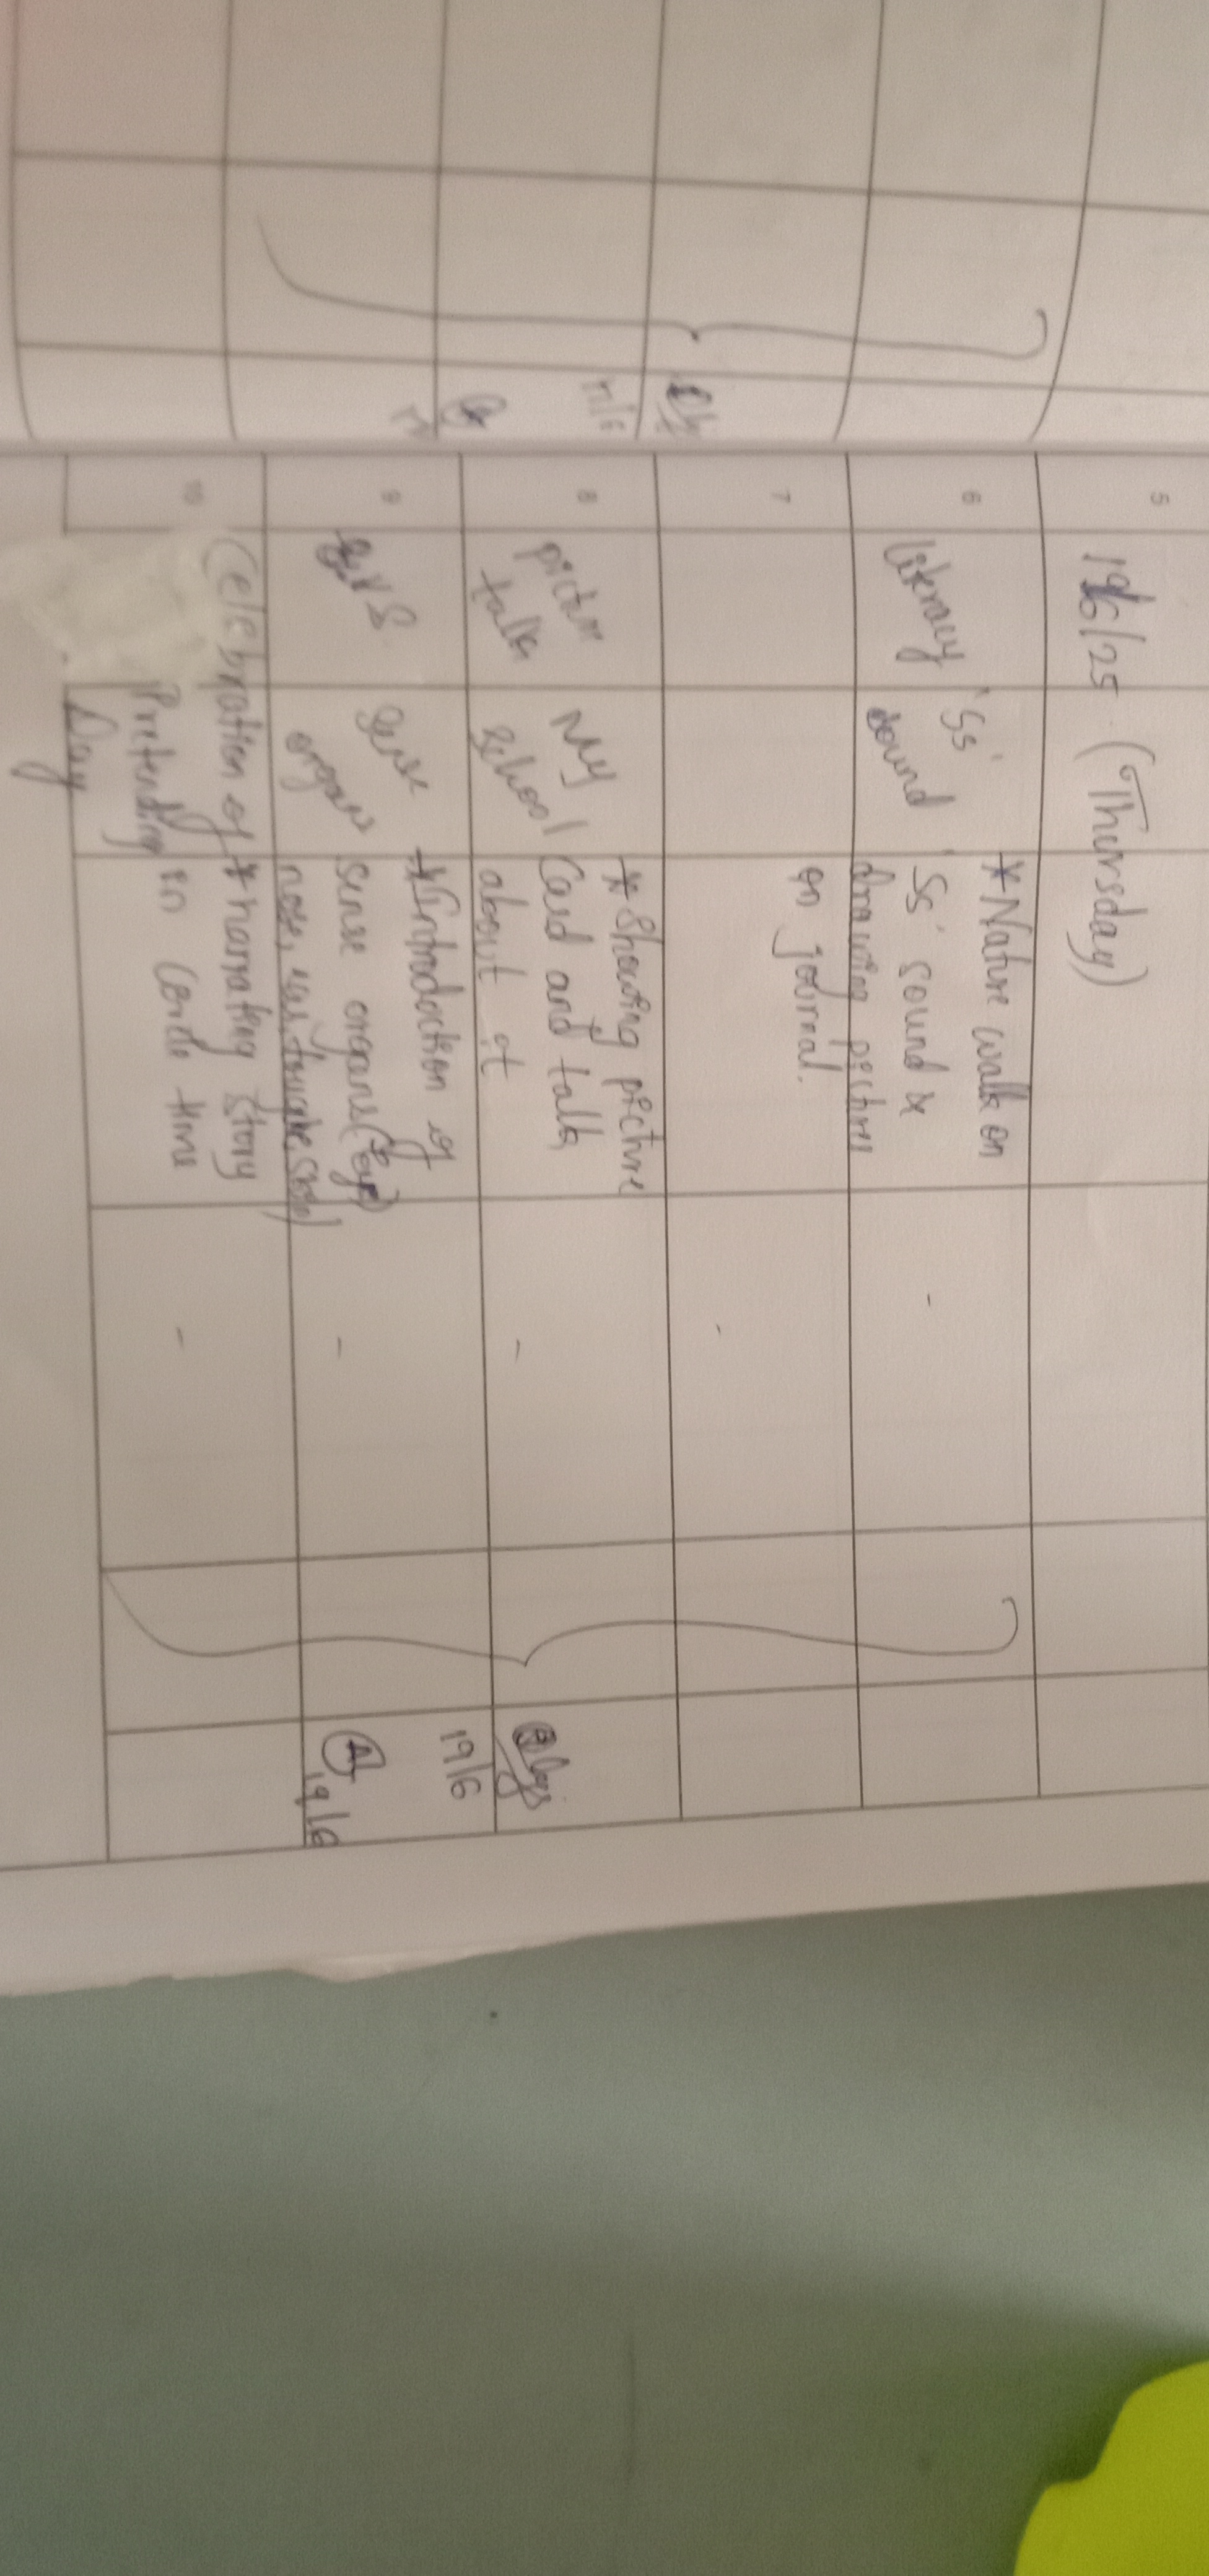 5
19/6/25 (Thursday)
6
literacy
'Ss'
sound
*Nature walk on
'Ss' sound &
drawing pictures
7
on journal.
8
pictur
talk
My
School
*Showing picture
Card and talk
about it
9
Sense
organs
*Introduction of
sense organs (eye,
nose, ear, tongue, skin)
10
Celebration of
Pretending
Day
*narrating story
in Circle time
19/6
19/6